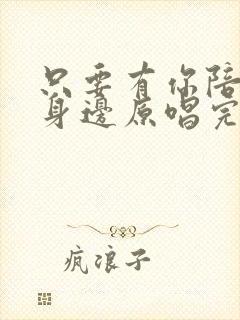 只要有你陪
身邊原唱完
疯浪子